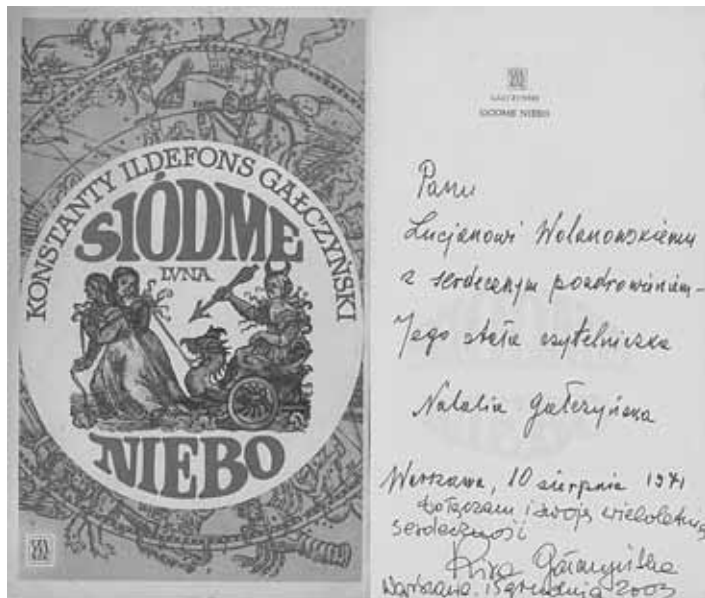 KONSTANTY ILDEFONS GAŁCZYŃSKI
SIÓDME
LVNA
NIEBO
GAŁCZYŃSKI
SIÓDME NIEBO
Panu
Lucjanowi Wolanowskiemu
z serdecznym pozdrowieniem –
Jego stała czytelniczka
Natalia Gałczyńska
Warszawa, 10 sierpnia 1971
dołączam i swoją wieloletnią
serdeczność
Kira Gałczyńska
Warszawa 15 grudnia 2003